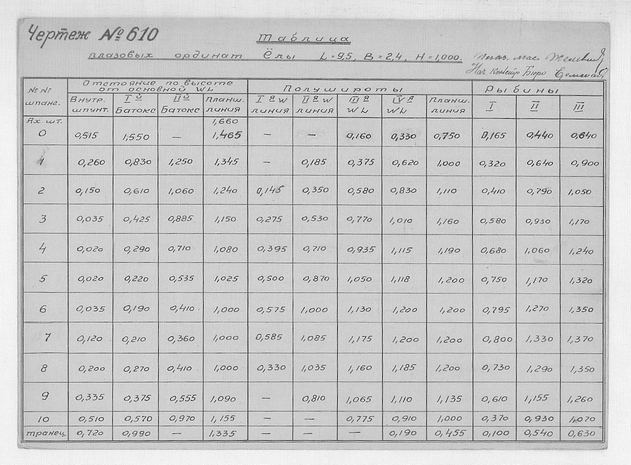 Чертеж № 610
Таблица
плазовых ординат Ёлы L=9,5, B=2,4, H=1,000.
Нач. Констр. Бюро
№ № шпанг. Отстояние по высоте от основной WL Полушироты Рыбины
Внутр. шпунт. I й Батокс II й Батокс Планш. линия I я W линия II я W линия III я WL IV я WL Планш. линия I II III
Ах шт. 1,660
0 0,515 1,550 — 1,465 — — 0,160 0,330 0,750 0,165 0,440 0,640
1 0,260 0,830 1,250 1,345 — 0,185 0,375 0,620 1,000 0,320 0,640 0,900
2 0,150 0,610 1,060 1,240 0,145 0,350 0,580 0,830 1,110 0,410 0,790 1,050
3 0,035 0,425 0,885 1,150 0,275 0,530 0,770 1,010 1,160 0,580 0,930 1,170
4 0,020 0,290 0,710 1,080 0,395 0,710 0,935 1,115 1,190 0,680 1,060 1,240
5 0,020 0,220 0,535 1,025 0,500 0,870 1,050 1,118 1,200 0,750 1,170 1,320
6 0,035 0,190 0,410 1,000 0,575 1,000 1,130 1,200 1,200 0,795 1,270 1,350
7 0,120 0,210 0,360 1,000 0,585 1,085 1,175 1,200 1,200 0,800 1,330 1,370
8 0,200 0,270 0,410 1,000 0,330 1,035 1,160 1,185 1,200 0,730 1,290 1,350
9 0,335 0,375 0,555 1,090 — 0,810 1,065 1,110 1,135 0,610 1,155 1,260
10 0,510 0,570 0,970 1,155 — — 0,775 0,910 1,000 0,370 0,930 1,020
транец. 0,720 0,990 — 1,335 — — — 0,190 0,455 0,100 0,540 0,630